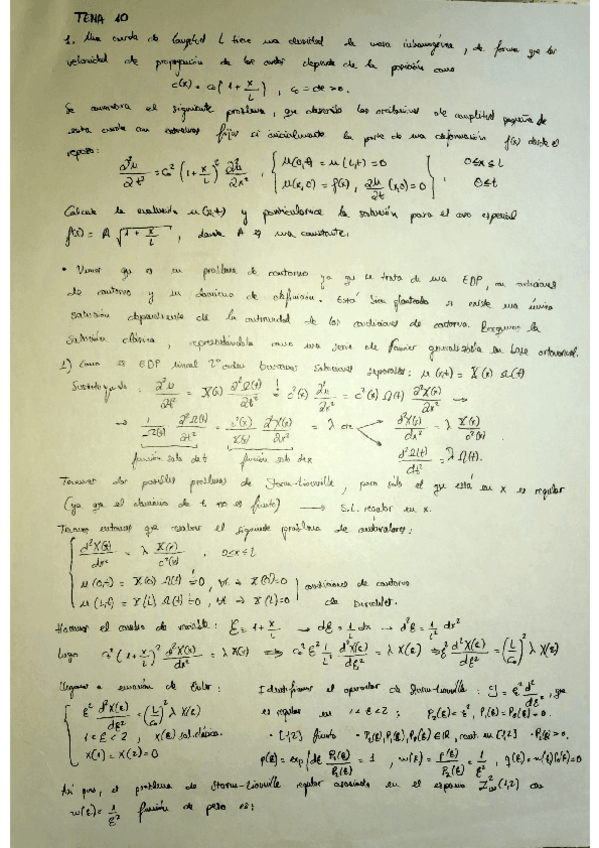 TEMA 10
1. Una cuerda de longitud L tiene una densidad de masa inhomogénea, de forma que la
velocidad de propagación de las ondas depende de la posición como
c(x) = c₀(1 + x/L), c₀ = cte > 0.
Se considera el siguiente problema, que describe las oscilaciones de amplitud pequeña de
esta cuerda con extremos fijos si inicialmente la parte de una deformación f(x) desde el
reposo:
∂²u/∂t² = c₀² (1 + x/L)² ∂²u/∂x², { u(0,t) = u(L,t) = 0 } 0≤x≤L
{ u(x,0) = f(x), ∂u/∂t (x,0) = 0 } , 0≤t
Calcular la evolución u(x,t) y particularice la solución para el caso especial
f(x) = A √(1 + x/L), donde A es una constante.
• Vemos que es un problema de contorno ya que se trata de una EDP, con condiciones
de contorno y un dominio de definición. Está bien planteado si existe una única
solución dependiente de la continuidad de las condiciones de contorno. Buscamos la
solución clásica, representándola como una serie de Fourier generalizada en base ortonormal.
1) Como es EDP lineal 2º orden buscamos soluciones separables: u(x,t) = X(x) Ω(t)
Sustituyendo: ∂²u/∂t² = X(x) ∂²Ω(t)/∂t² = c²(x) ∂²u/∂x² = c²(x) Ω(t) ∂²X(x)/∂x² →
→ 1/Ω(t) ∂²Ω(t)/∂t² = c²(x)/X(x) ∂²X(x)/∂x² = λ cte
d²X(x)/dx² = λ X(x)/c²(x)
d²Ω(t)/dt² = λ Ω(t).
función solo de t función solo de x
Tenemos dos posibles problemas de Sturm-Liouville, pero sólo el que está en x es regular
(ya que el dominio de t no es finito) → S.L. regular en x.
Tenemos entonces que resolver el siguiente problema de autovalores:
d²X(x)/dx² = λ X(x)/c²(x), 0<x<L
u(0,t) = X(0) Ω(t) = 0, ∀t ⇒ X(0)=0 } condiciones de contorno
u(L,t) = X(L) Ω(t) = 0, ∀t ⇒ X(L)=0 } de Dirichlet.
Hacemos el cambio de variable: ξ = 1 + x/L → dξ = 1/L dx → d²ξ = 1/L² dx²
Luego c₀² (1 + x/L)² d²X(x)/dx² = λ X(x) ⇒ c₀² ξ² 1/L² d²X(ξ)/dξ² = λ X(ξ) ⇒ ξ² d²X(ξ)/dξ² = (L/c₀)² λ X(ξ)
Llegamos a ecuación de Euler: Identificamos el operador de Sturm-Liouville: 𝓛 = ξ² d²/dξ², que
ξ² d²X(ξ)/dξ² = (L/c₀)² λ X(ξ) es regular en 1<ξ<2; P₂(ξ) = ξ², P₁(ξ) = P₀(ξ) = 0.
1<ξ<2, X(ξ) sol. clásica • [1,2] finito • P₂(ξ), P₁(ξ), P₀(ξ) ∈ ℝ, cont. en [1,2] • P₂(ξ) > 0.
X(1) = X(2) = 0 p(ξ) = exp ∫dξ P₁(ξ)/P₂(ξ) = 1, w(ξ) = p(ξ)/P₂(ξ) = 1/ξ², q(ξ) = w(ξ)P₀(ξ) = 0
Así pues, el problema de Sturm-Liouville regular asociado en el espacio L²w(1,2) con
w(ξ) = 1/ξ² función de peso es: